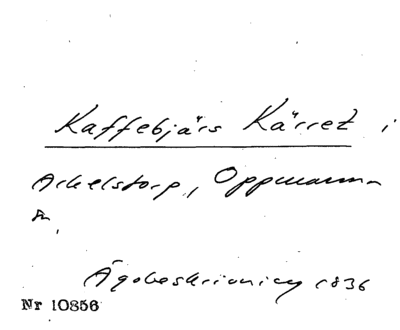 Kaffebjärs Kärret i
Arkelstorp, Oppmanna
sn,
Ägobeskrivning 1836
Nr 10856